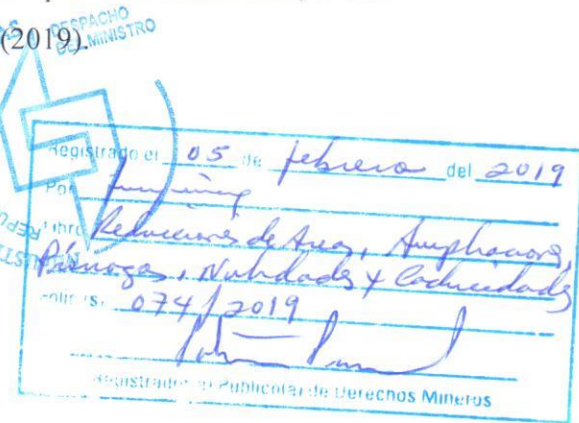 (2019).
DESPACHO
DEL MINISTRO
Registrado el 05 de febrero del 2019
Por
Libro Reducciones de Areas, Ampliaciones,
Prórrogas, Nulidades y Caducidades
Folio (s) 074/2019
Registrador Publico de Derechos Mineros